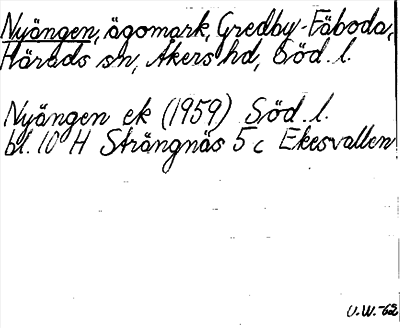 Nyängen, ägomark, Gredby-Fäboda,
Härads sn, Åkers hd, Söd. l.
Nyängen ek (1959) Söd. l.
bl. 10 H Strängnäs 5 c Ekesvallen
U.W.-62